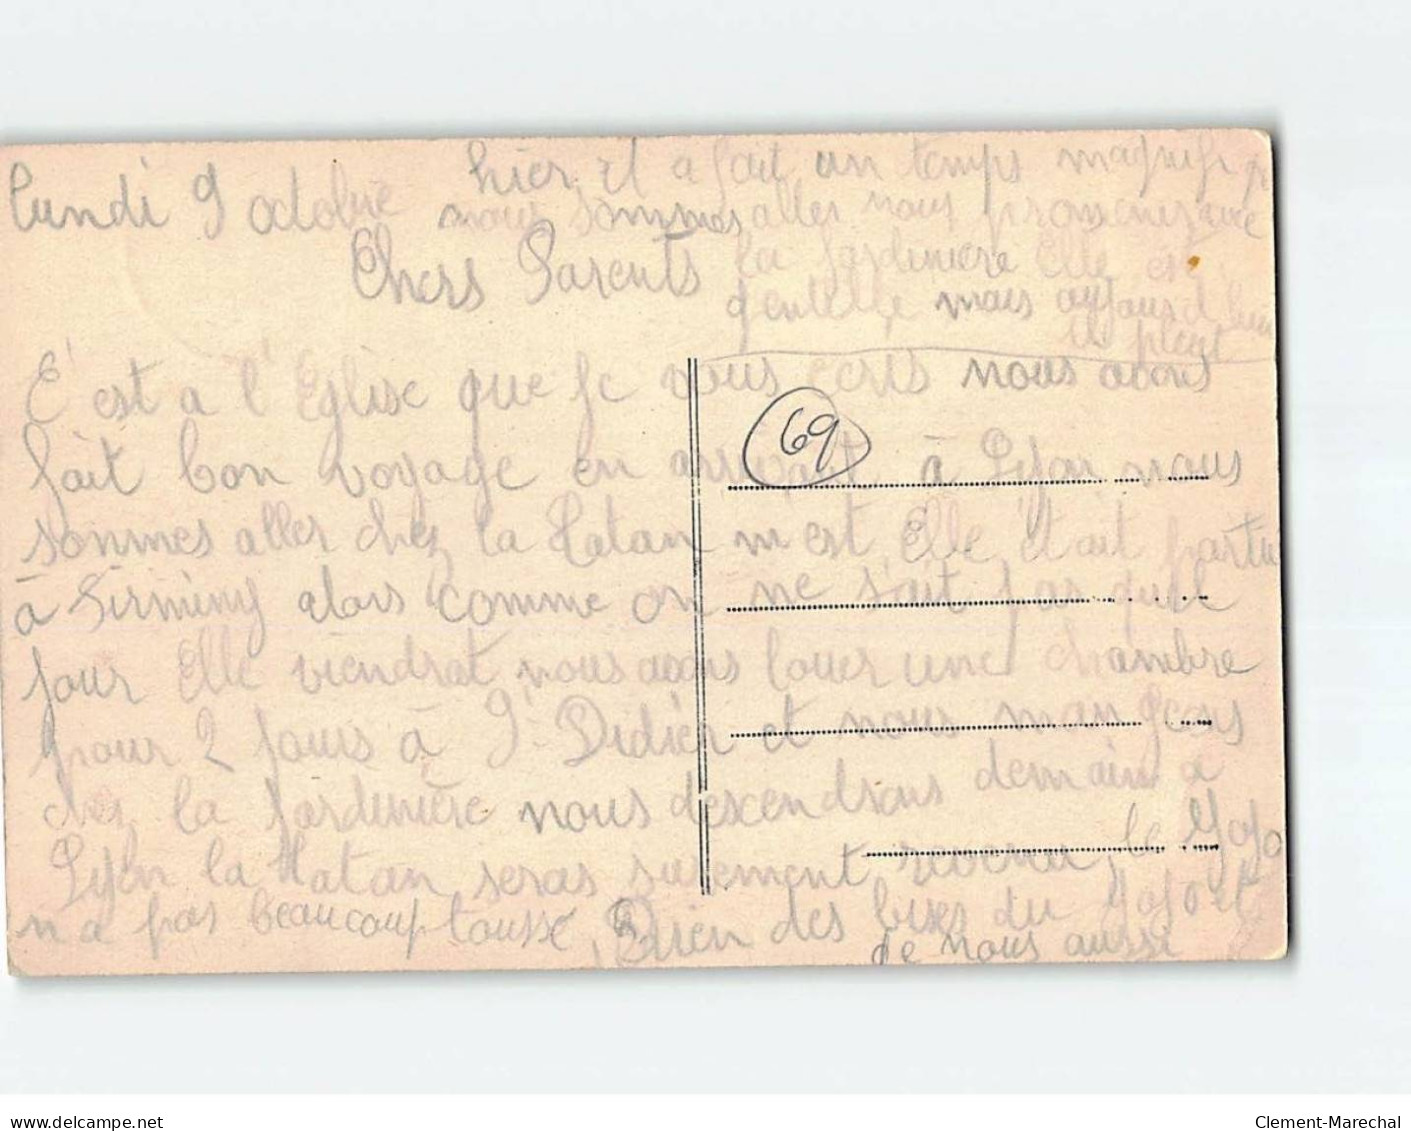 Lundi 9 octobre
hier il a fait un temps magnifi
nous sommes aller nous promener avec
la Jardiniere Elle est
gentille mais aujourd'hui
il pleut
Chers Parents
C'est a l'Eglise que je vous ecris nous avons
fait bon voyage en arrivant à Lyon nous
sommes aller chez la Tatan m est Elle était partu
à Firminy alors comme on ne sait pas quel
jour Elle viendrat nous avons louer une chambre
pour 2 jours à St Didier et nous mangeons
chez la Jardinière nous descendrons demain a
Lyon la Tatan seras surement revenu, le Yoyo
n a pas beaucoup toussé, Bien des bises du Yoyo et
de nous aussi
69
delcampe.net
Clement-Marechal